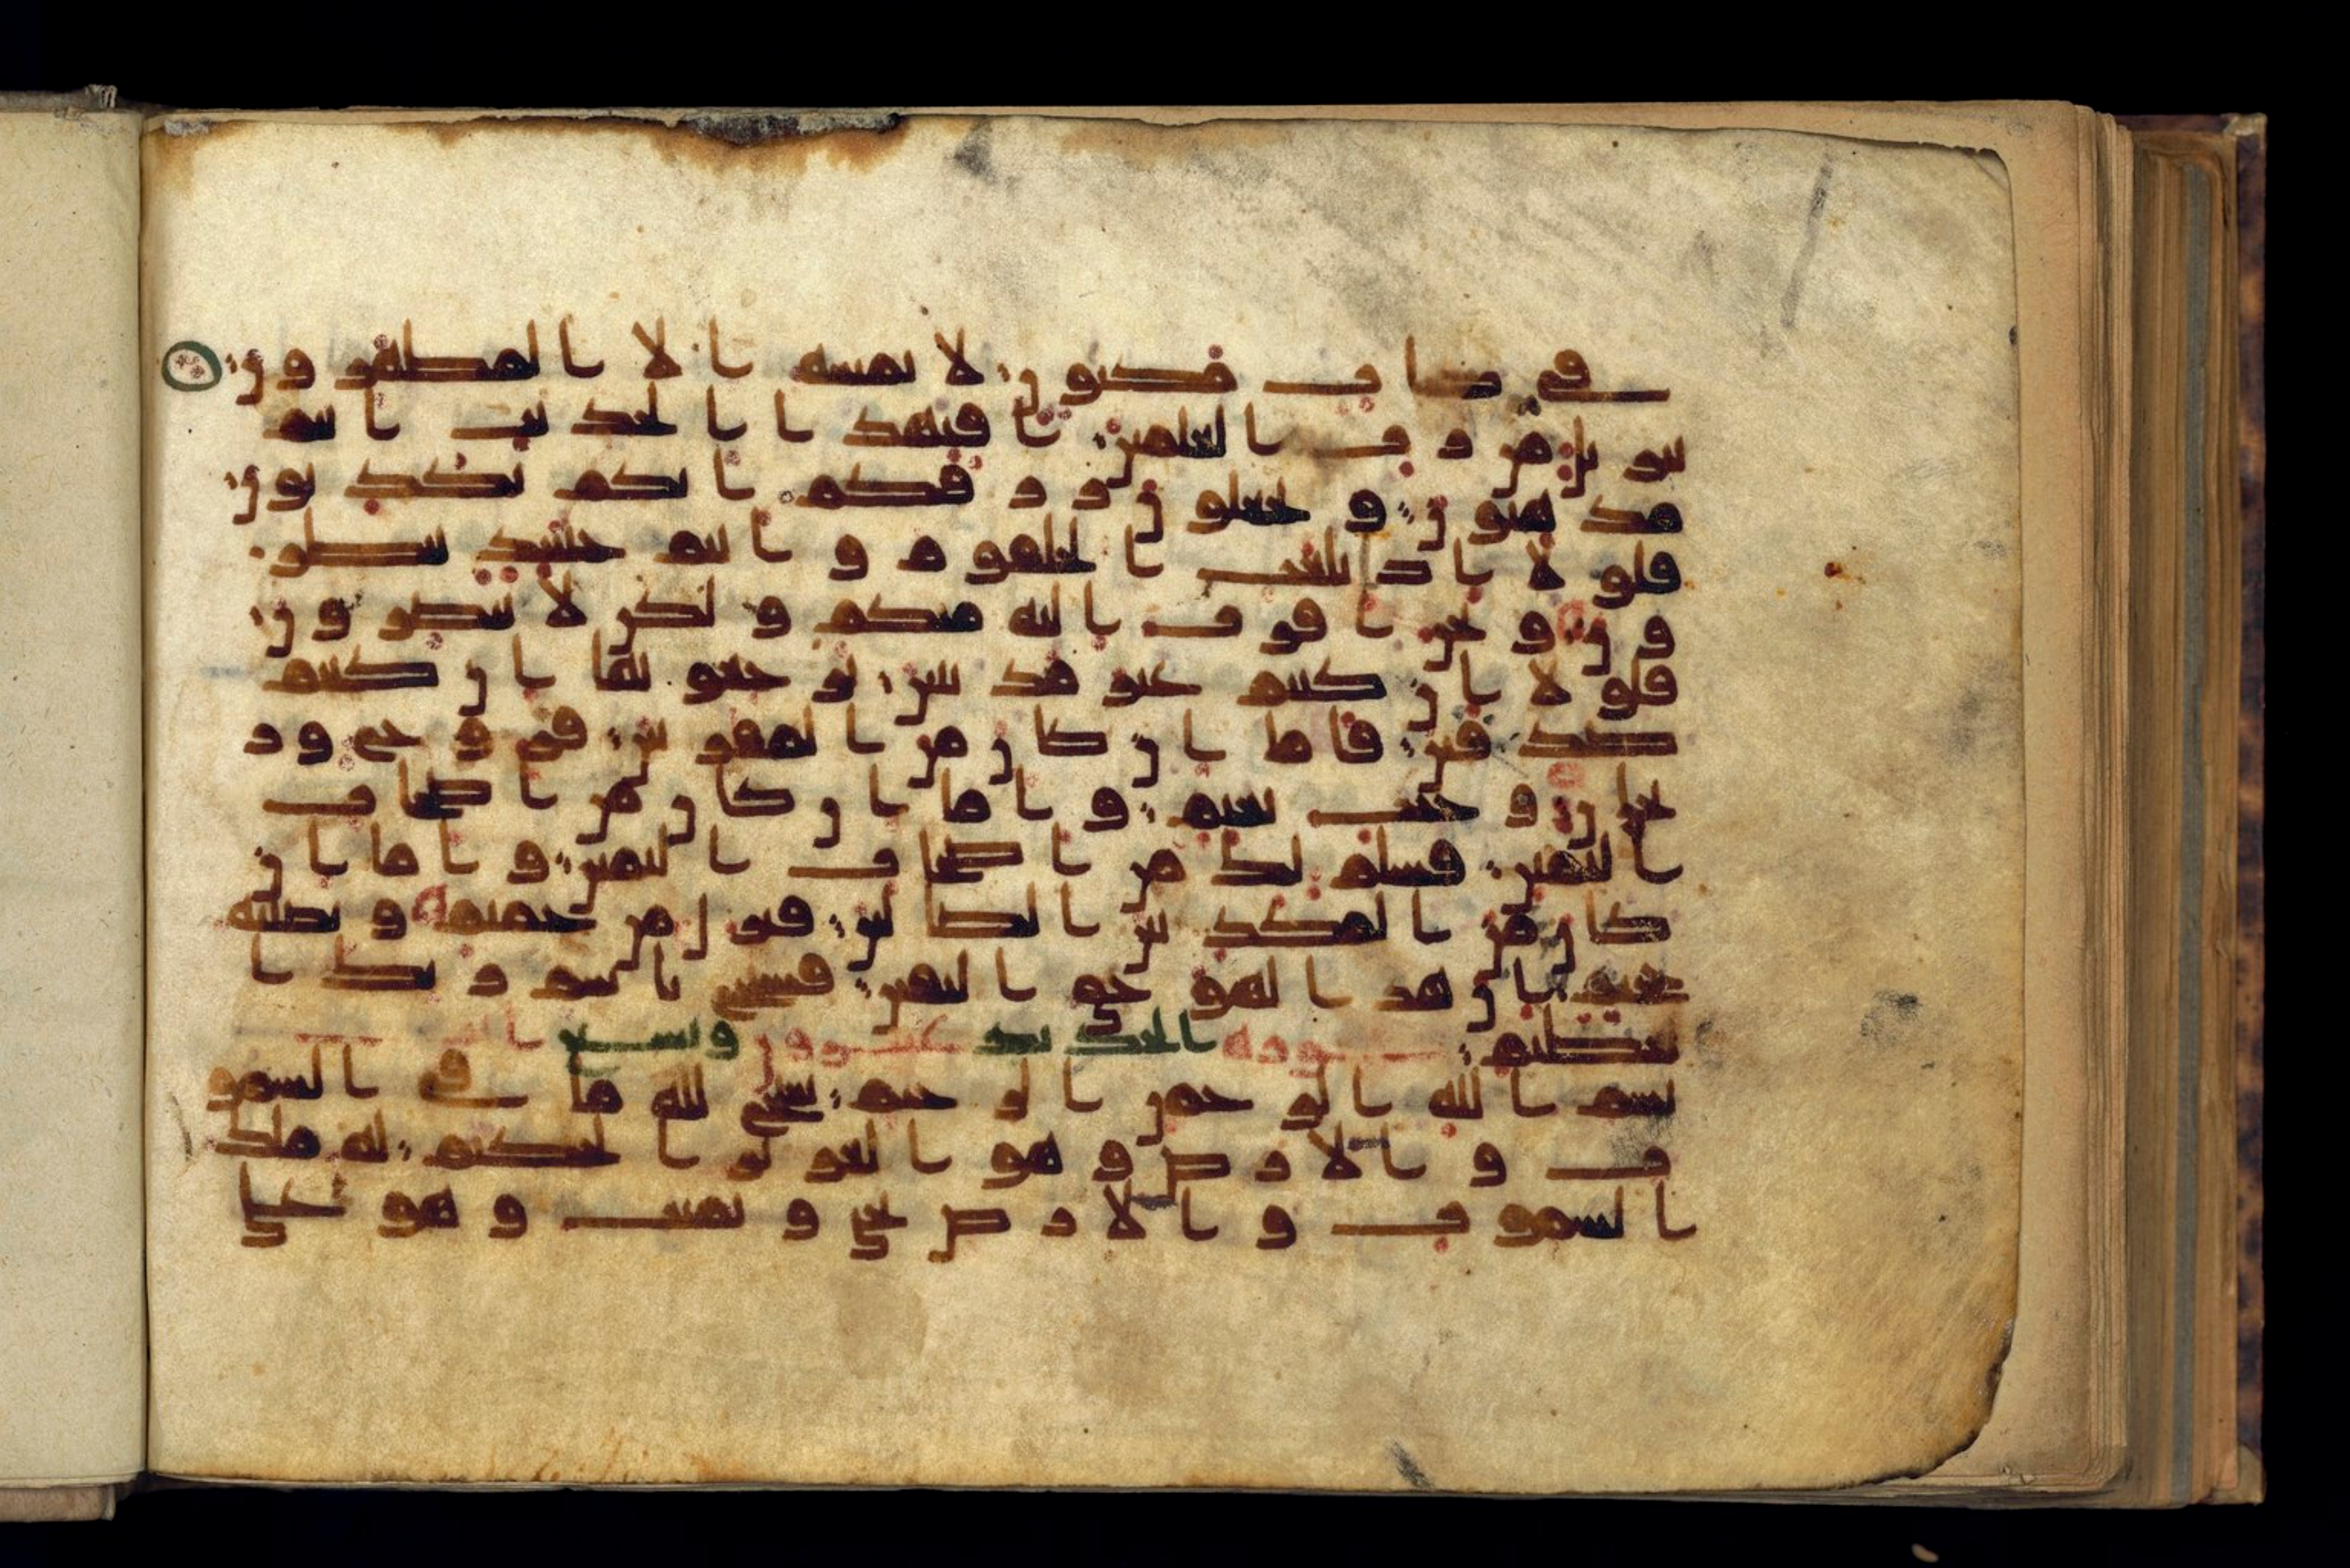 في كتاب مكنون لا يمسه الا المطهرون
تنزيل من رب العلمين افبهذا الحديث انتم
مدهنون وتجعلون رزقكم انكم تكذبون
فلولا اذا بلغت الحلقوم وانتم حينئذ تنظر
ون ونحن اقرب اليه منكم ولكن لا تبصرون
فلولا ان كنتم غير مدينين ترجعونها ان كنتم
صدقين فاما ان كان من المقربين فروح ور
يحان وجنت نعيم واما ان كان من اصحاب
اليمين فسلم لك من اصحاب اليمين واما ان
كان من المكذبين الضالين فنزل من حميم وتصليه
جحيم ان هذا لهو حق اليقين فسبح باسم ربك ا
لعظيم سورة الحديد عشرون وتسع
بسم الله الرحمن الرحيم سبح لله ما في السمو
ت والارض وهو العزيز الحكيم له ملك
السموت والارض يحي ويميت وهو على